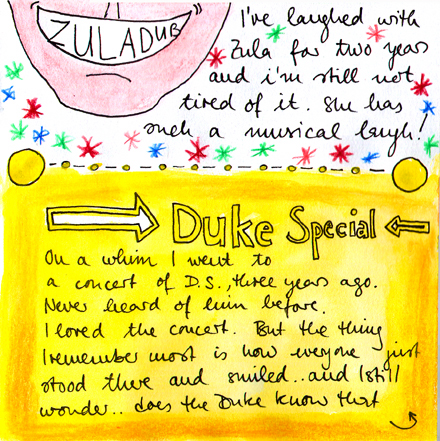 ZULADUB
I've laughed with
Zula for two years
and i'm still not
tired of it. She has
such a musical laugh!
Duke Special
On a whim I went to
a concert of D.S., three years ago.
Never heard of him before.
I loved the concert. But the thing
I remember most is how everyone just
stood there and smiled.. and I still
wonder.. does the Duke know that